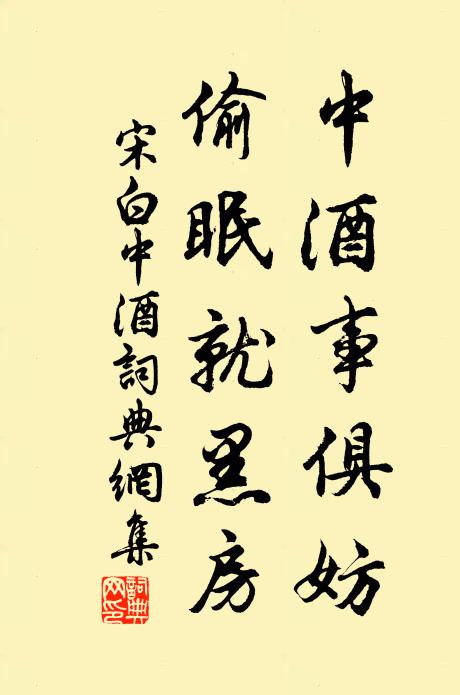 中酒事俱妨
偷眠就黑房
宋白中酒詞典網集
詞典
网印